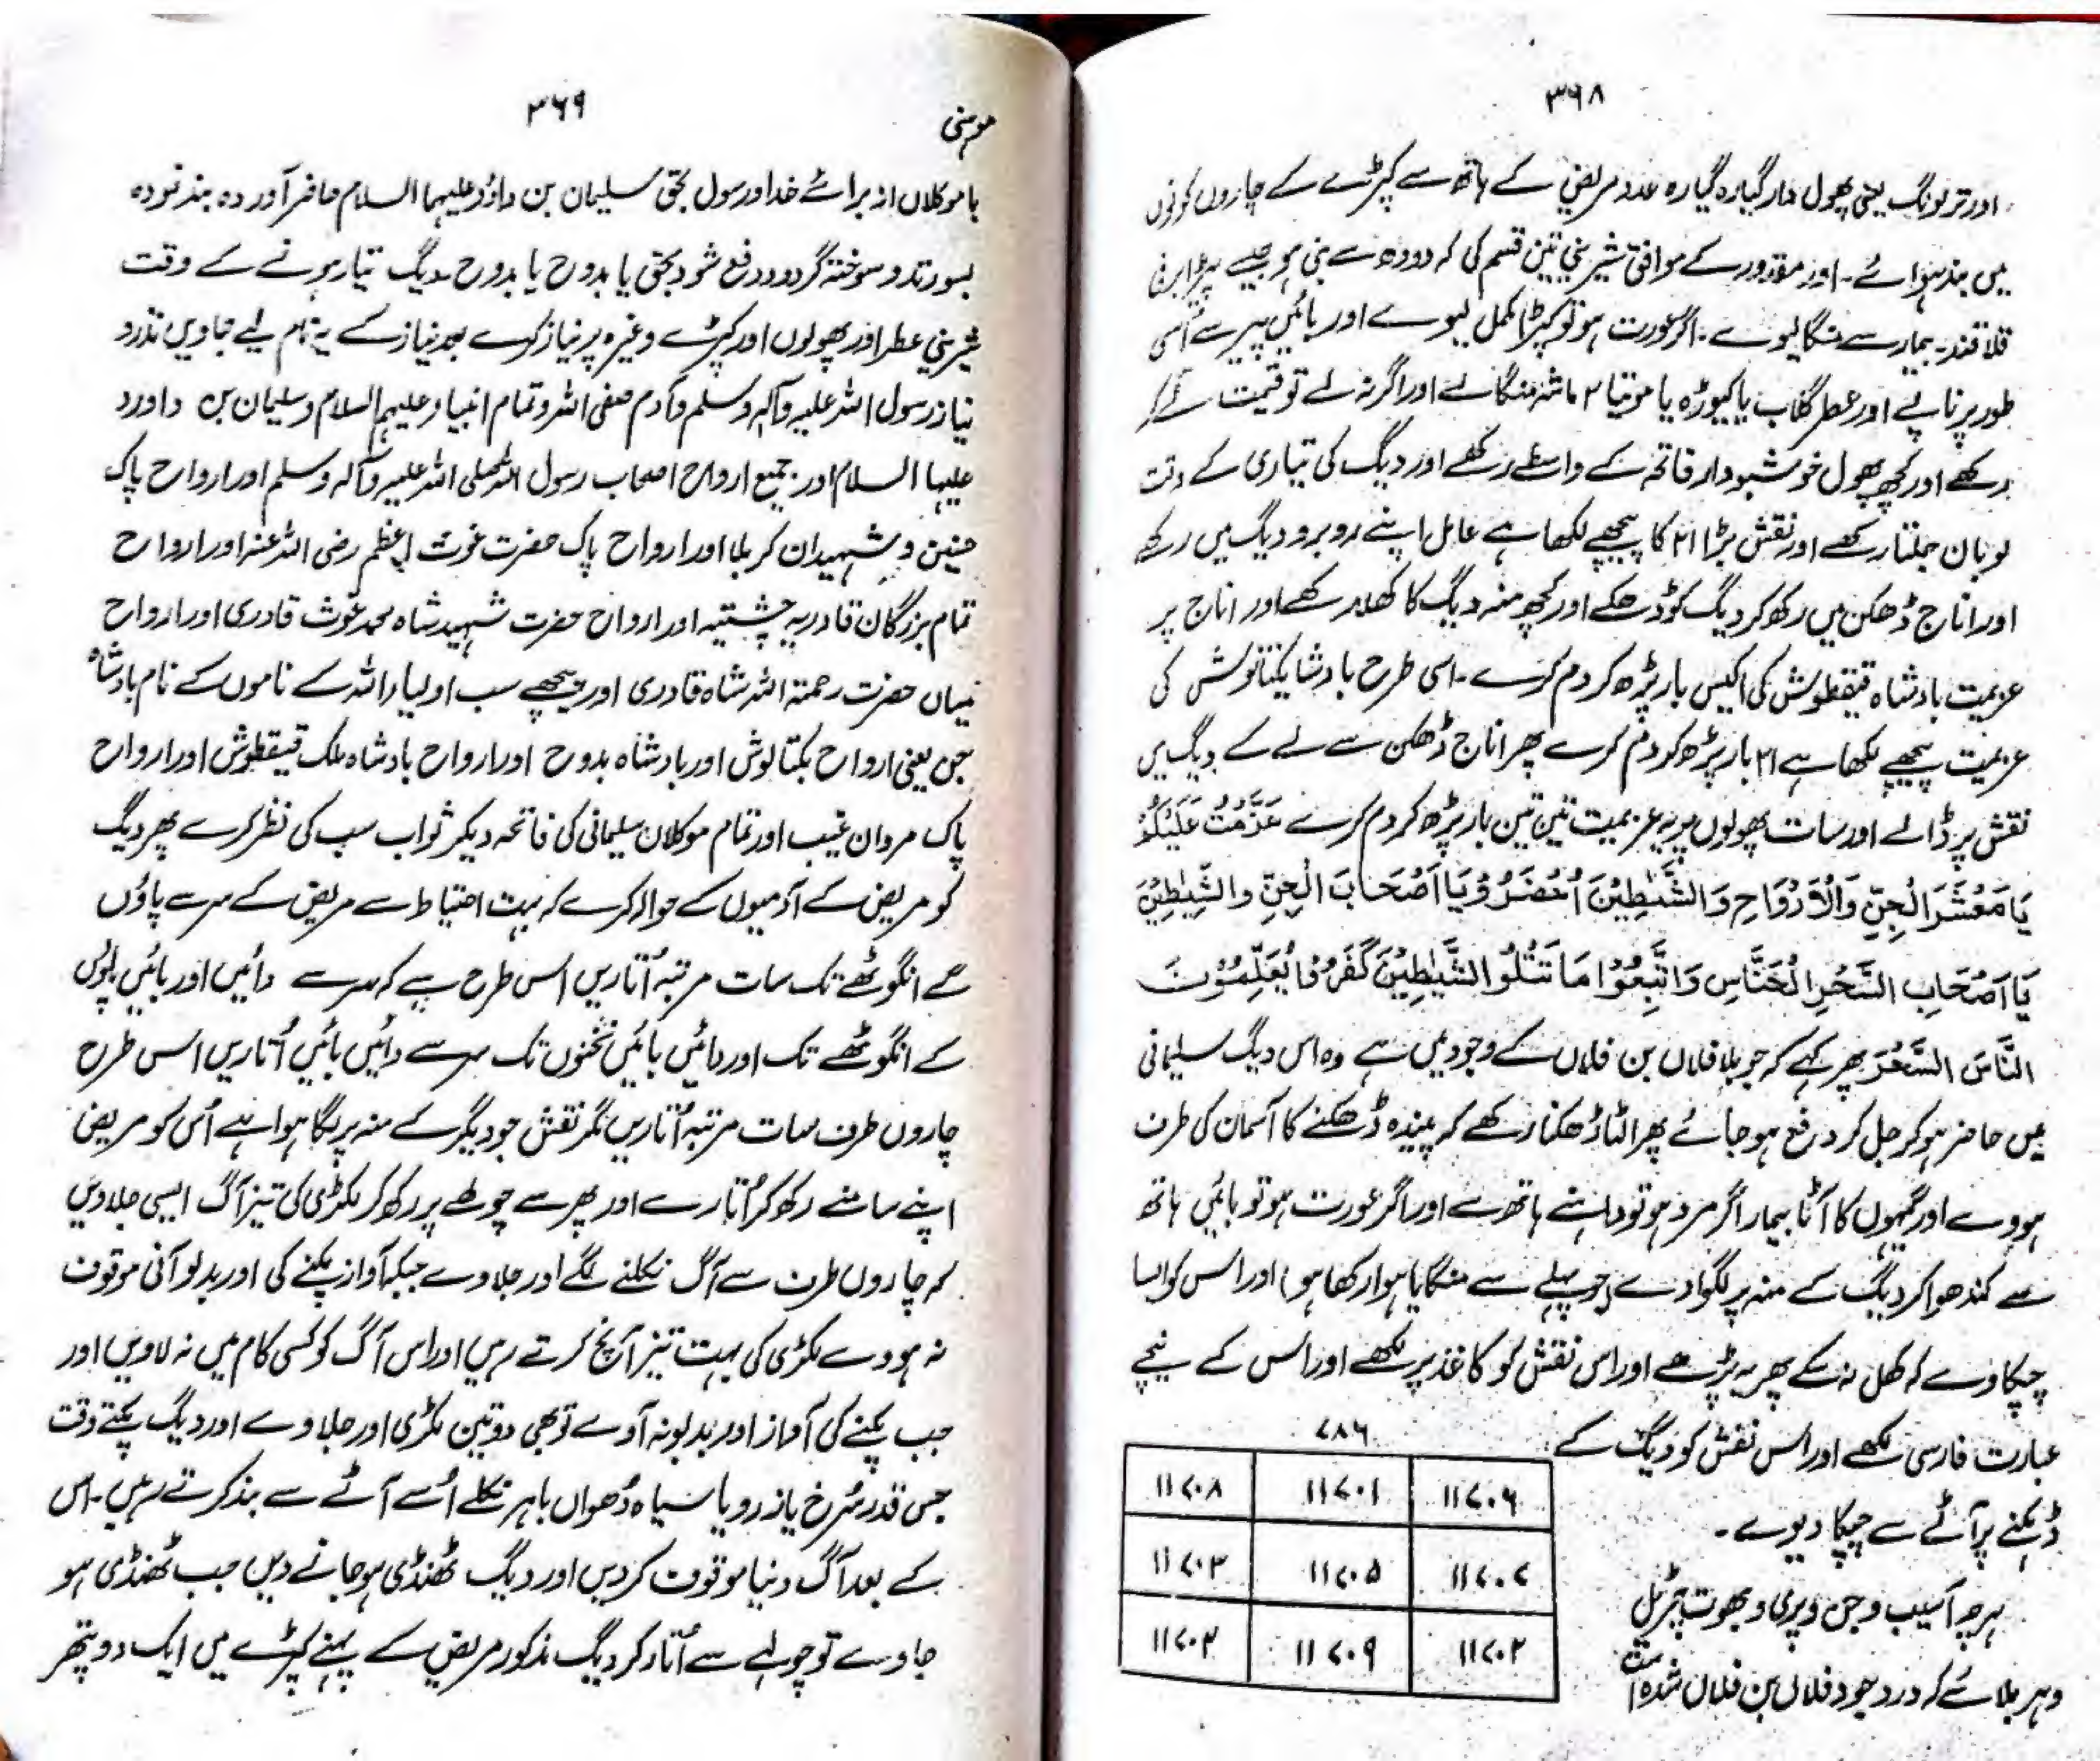 ۳۶۸
اور تر لونگ یعنی پھول دار گیارہ گیارہ عدد مریض کے ہاتھ سے کپڑے کے چاروں کونوں
میں بندھوائے۔ اور مقدور کے موافق شیرینی تین قسم کی کہ دودھ سے بنی ہو جیسے پیڑا برفی
قلاقند۔ بیمار سے منگا لیوے۔ اگر عورت ہو تو کپڑا مکمل لیوے اور بائیں پیر سے اُسی
طور پر ناپے اور عطر گلاب یا کیوڑہ یا موتیا ۲ ماشہ منگالے اور اگر نہ لے تو قیمت لے کر
رکھے اور کچھ پھول خوشبودار فاتحہ کے واسطے رکھے اور دیگ کی تیاری کے وقت
لوبان جلتا رکھے اور نقش بڑا ۲۱ کا پیچھے لکھا ہے عامل اپنے روبرو دیگ میں رکھے
اور اناج ڈھکن میں رکھ کر دیگ کو ڈھکے اور کچھ منہ دیگ کا کھلا رکھے اور اناج پر
عزیمت بادشاہ قیقطوش کی اکیس بار پڑھ کر دم کرے۔ اسی طرح بادشاہ یکتانوش کی
عزیمت پیچھے لکھا ہے ۲۱ بار پڑھ کر دم کرے پھر اناج ڈھکن سے لے کے دیگ میں
نقش پر ڈالے اور سات پھولوں پر یہ عزیمت تین تین بار پڑھ کر دم کرے عَزَمْتُ عَلَیْکُمْ
یَا مَعْشَرَ الْجِنِّ وَالْاَرْوَاحِ وَالشَّیٰطِیْنَ اُحْضَرُوْ یَا اَصْحَابَ الْجِنِّ وَالشَّیٰطِیْنَ
یَا اَصْحَابِ السِّحْرِ الْخَنَّاسِ وَاتَّبِعُوْا مَا تَتْلُوا الشَّیٰطِیْنَ کَفَرُوْا یُعَلِّمُوْنَ
النَّاسَ السِّحْرَ پھر کہے کہ جو بلا فلاں بن فلاں کے وجود میں ہے وہ اس دیگ سلیمانی
میں حاضر ہو کر جل کر دفع ہو جائے پھر الٹا ڈھکنا رکھے کہ پیندہ ڈھکنے کا آسمان کی طرف
ہووے اور گیہوں کا آٹا بیمار اگر مرد ہو تو داہنے ہاتھ سے اور اگر عورت ہو تو بائیں ہاتھ
سے گندھوا کر دیگ کے منہ پر لگوا دے (جو پہلے سے منگایا ہوا رکھا ہو) اور اس کو ایسا
چپکاوے کہ کھل نہ سکے پھر یہ پڑھے اور اس نقش کو کاغذ پر لکھے اور اس کے نیچے
عبارت فارسی لکھے اور اس نقش کو دیگ کے
ڈہکنے پر آٹے سے چپکا دیوے۔
ہر چہ آسیب و جن و پری و بھوت چڑیل
و ہر بلائے کہ در وجود فلاں بن فلاں شدہ است
۷۸۶
۱۱۷۰۶ ۱۱۷۰۱ ۱۱۷۰۸
۱۱۷۰۷ ۱۱۷۰۵ ۱۱۷۰۳
۱۱۷۰۲ ۱۱۷۰۹ ۱۱۷۰۴
۳۶۹
موہنی
با موکلاں از برائے خدا و رسول بحق سلیمان بن داؤد علیہما السلام حاضر آوردہ بند نمودہ
بسوزند و سوختہ گردد و دفع شود بحق یا بدوح یا بدوح۔ دیگ تیار ہونے کے وقت
شیرینی عطر اور پھولوں اور کپڑے وغیرہ پر نیاز کرے بعد نیاز کے یہ نام لیے جاویں نذر و
نیاز رسول اللہ علیہ وآلہ وسلم و آدم صفی اللہ و تمام انبیاء علیہم السلام و سلیمان بن داورد
علیہا السلام اور جمیع ارواح اصحاب رسول اللہ صلی اللہ علیہ وآلہ وسلم اور ارواح پاک
حسنین و شہیدان کربلا اور ارواح پاک حضرت غوث اعظم رضی اللہ عنہ اور ارواح
تمام بزرگان قادریہ چشتیہ اور ارواح حضرت شہید شاہ محمد غوث قادری اور ارواح
میاں حضرت رحمۃ اللہ شاہ قادری اور پیچھے سب اولیاء اللہ کے ناموں کے نام بادشاہ
جن یعنی ارواح بکتالوش اور بادشاہ بدوح اور ارواح بادشاہ ملک قیقطوش اور ارواح
پاک مردان غیب اور تمام موکلان سلیمانی کی فاتحہ دیکر ثواب سب کی نظر کرے پھر دیگ
کو مریض کے آدمیوں کے حوالہ کرے کہ بہت احتیاط سے مریض کے سر سے پاؤں
کے انگوٹھے تک سات مرتبہ اُتاریں اس طرح پے کہ سر سے دائیں اور بائیں پاؤں
کے انگوٹھے تک اور دائیں بائیں ٹخنوں تک سر سے دائیں بائیں اُتاریں اس طرح
چاروں طرف سات مرتبہ اُتاریں مگر نقش جو دیگر کے منہ پر لگا ہوا ہے اُس کو مریض
اپنے سامنے رکھ کر اُتارے اور پھر سے چولھے پر رکھ کر لکڑی کی تیز آگ ایسی جلاویں
کہ چاروں طرف سے آگ نکلنے لگے اور جلاوے جبکہ آواز پکنے کی اور بدبو آنی موقوف
نہ ہووے لکڑی کی بہت تیز آنچ کرتے رہیں اور اس آگ کو کسی کام میں نہ لاویں اور
جب پکنے کی آواز اور بدبو نہ آوے تو بھی دو تین لکڑی اور جلاوے اور دیگ پکتے وقت
جس قدر سُرخ یا زرد و یا سیاہ دُھواں باہر نکلے اُسے آٹے سے بند کرتے رہیں۔ اس
کے بعد آگ دنیا موقوف کر دیں اور دیگ ٹھنڈی ہو جانے دیں جب ٹھنڈی ہو
جاوے تو چولہے سے اُتار کر دیگ مذکور مریض کے پہنے کپڑے میں ایک دو پتھر